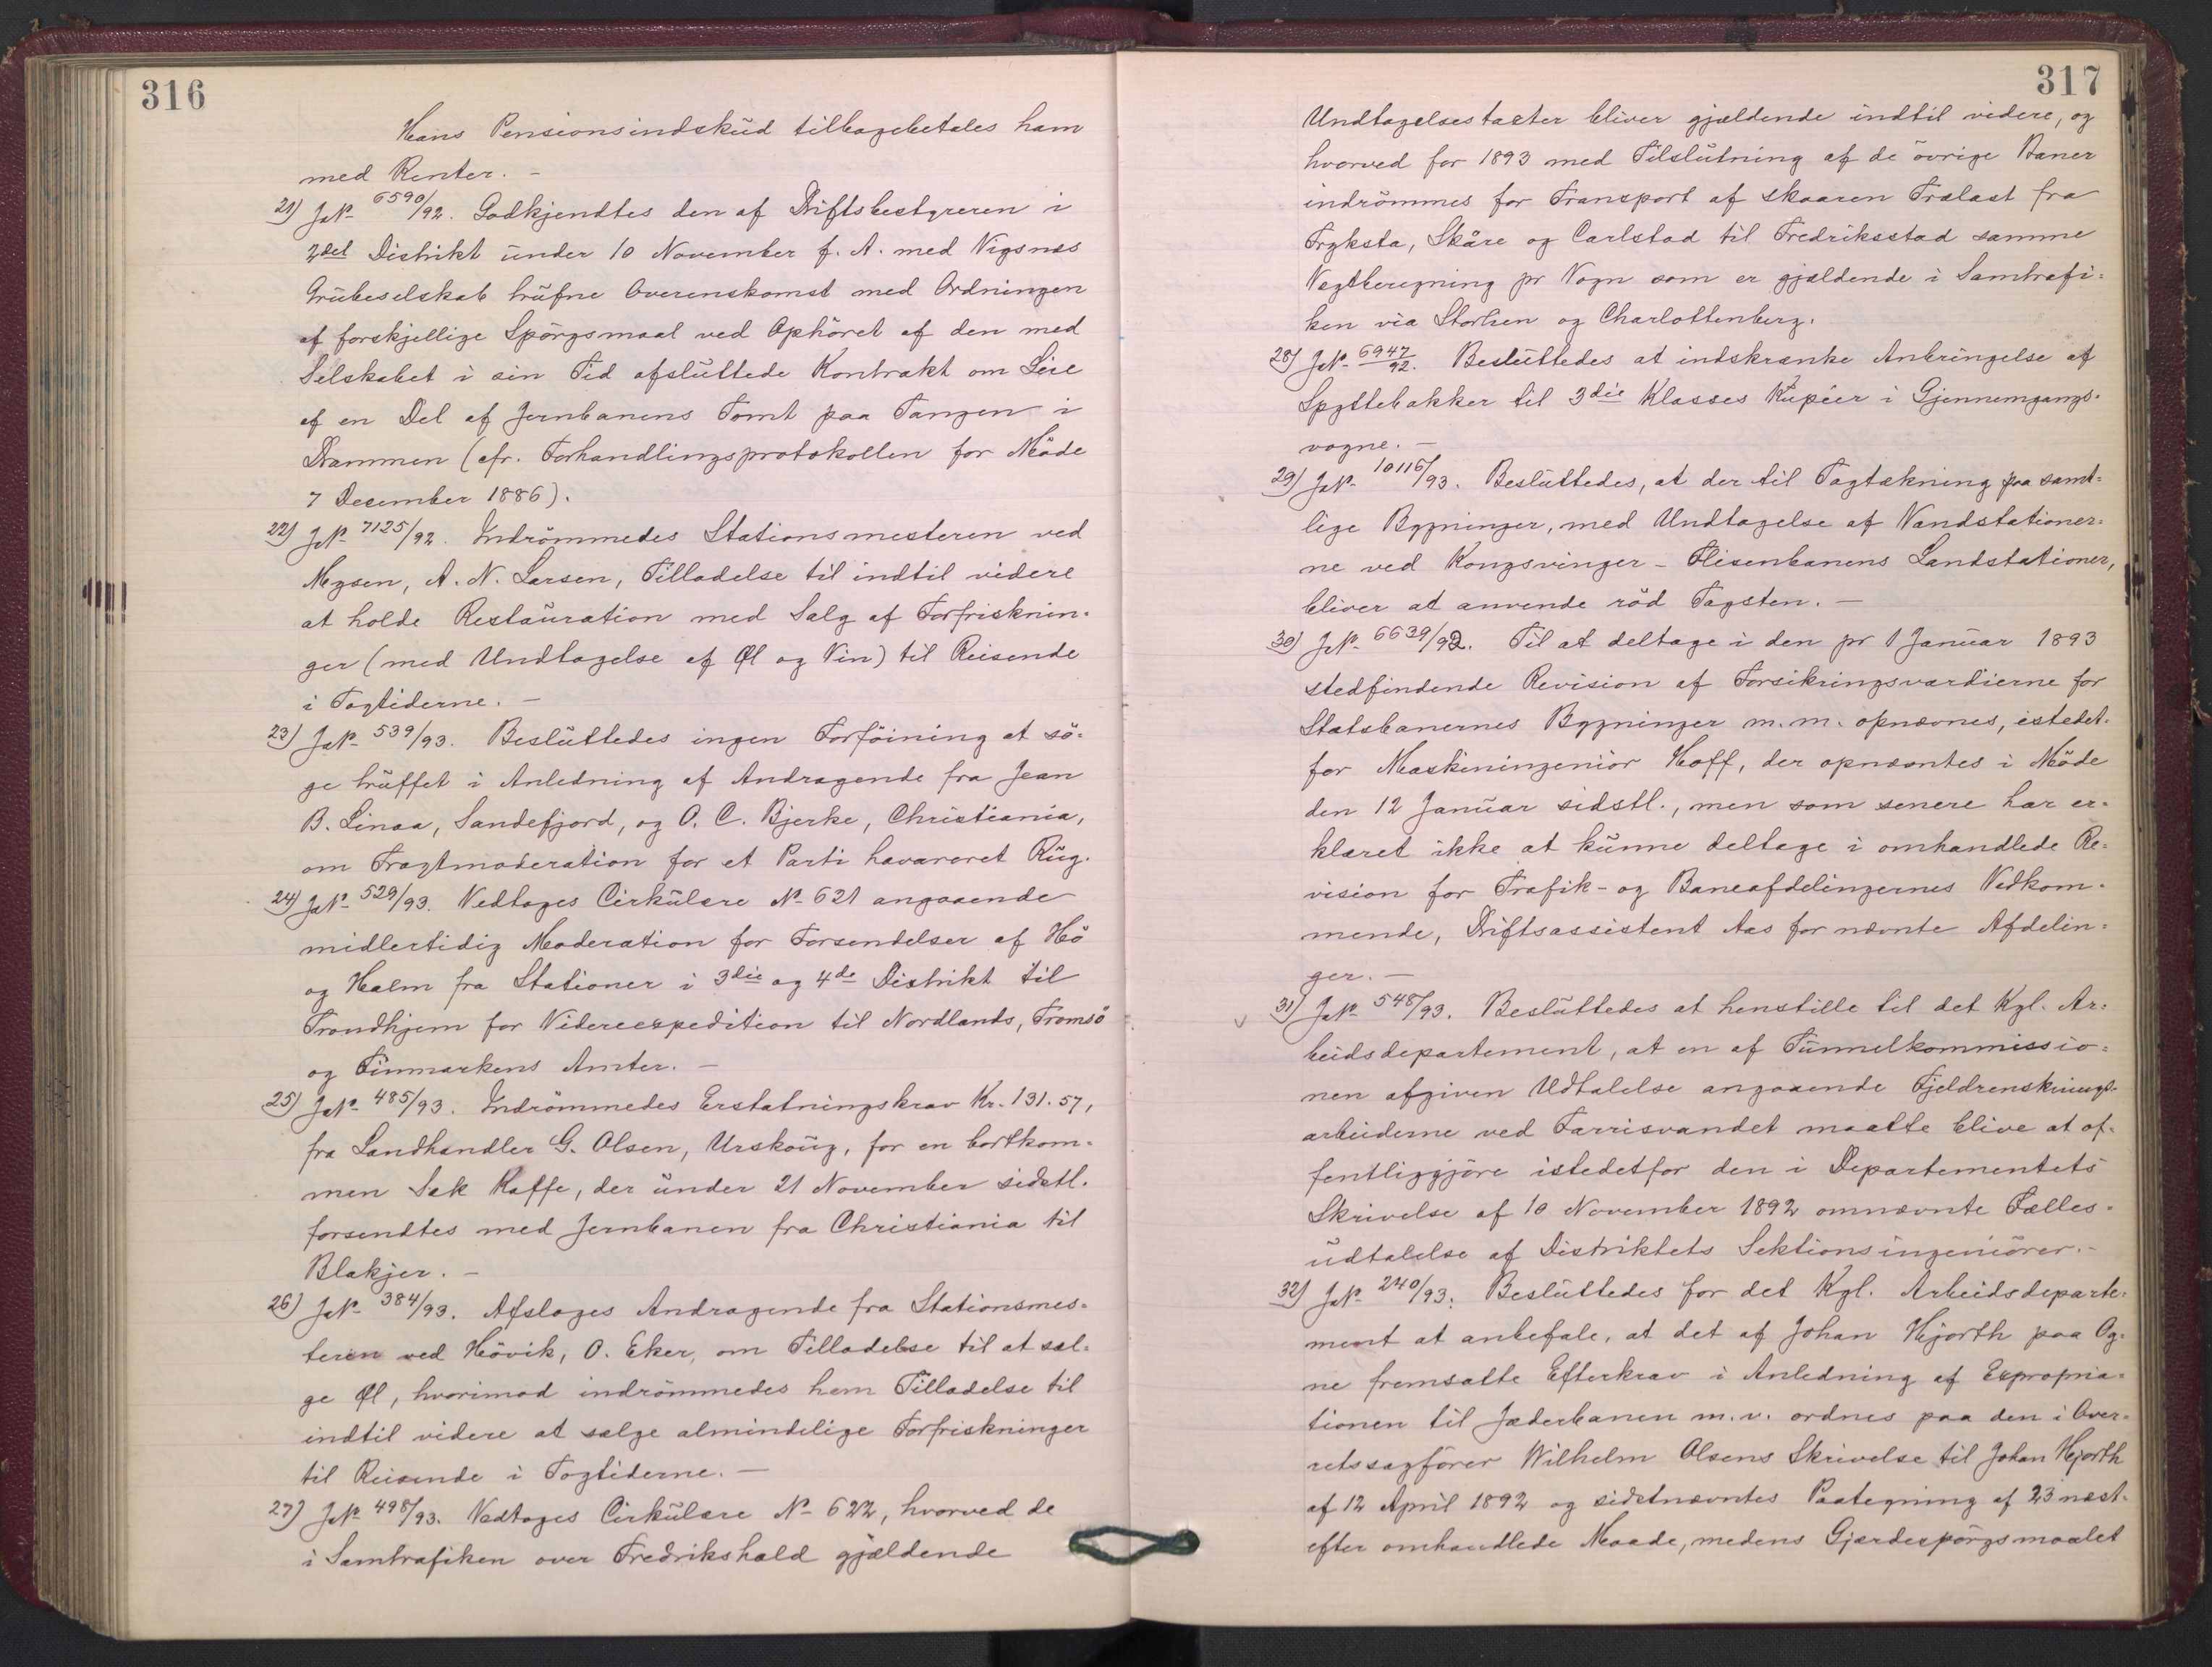 316
Hans Pensionsindskud tilbagebetales ham
med Renter. –
21) JN° 6590/92. Godkjendtes den af Driftsbestyreren i
2det Distrikt under 10 November f. A. med Vigsnæs
Grubeselskab trufne Overenskomst med Ordningen
af forskjellige Spörgsmaal ved Ophöret af den med
Selskabet i sin Tid afsluttede Kontrakt om Leie
af en Del af Jernbanens Tomt paa Tangen i
Drammen (cfr. Forhandlingsprotokollen for Möde
7 Desember 1886).
22) JN° 7125/92. Indrömmedes Stationsmesteren ved
Mysen, A. N. Larsen, Tilladelse til indtil videre
at holde Restauration med Salg af Forfrisknin=
ger (med Undtagelse af Øl og Vin) til Reisende
i Togtiderne. –
23) JN° 539/93. Besluttedes ingen Forföining at sö=
ge truffet i Anledning af Andragende fra Jean
B. Linaa, Sandefjord, og O. C. Bjerke, Christiania,
om Fragtmoderation for et Parti havareret Rug.
24) JN° 529/93. Vedtoges Cirkulære N° 621 angaaende
midlertidig Moderation for Forsendelser af Hö
og Halm fra Stationer i 3die og 4de Distrikt til
Trondhjem for Videreexpedition til Nordlands, Tromsö
og Finmarkens Amter. –
25) JN° 485/93. Indrömmedes Erstatningskrav Kr. 131.57,
fra Landhandler G. Olsen, Urskoug, for en bortkom=
men Sæk Kaffe, der under 21 November sidstl.
forsendtes med Jernbanen fra Christiania til
Blakjer. –
26) JN° 384/93. Afsloges Andragende fra Stationsmes=
teren ved Hövik, O. Eker, om Tilladelse til at sæl=
ge Øl, hvorimod indrömmedes ham Tilladelse til
indtil videre at sælge almindelige Forfriskninger
til Reisende i Togtiderne. –
27) JN° 498/93. Vedtoges Cirkulære N° 622, hvorved de
i Samtrafiken over Fredrikshald gjældende
317
Undtagelsestaxter bliver gjældende indtil videre, og
hvorved for 1893 med Tilslutning af de övrige Baner
indrömmes for Transport af skaaren Trælast fra
Fryksta, Skåre og Carlstad til Fredriksstad samme
Vægtberegning pr Vogn som er gjældende i Samtrafi=
ken via Storlien og Charlottenberg.
28) JN° 6947/92. Besluttedes at indskrænke Anbringelse af
Spyttebakker til 3die Klasses Kupéer i Gjennemgangs=
vogne. –
29) JN° 10116/93. Besluttedes, at der til Tagtækning paa samt=
lige Bygninger, med Undtagelse af Vandstationer=
ne ved Kongsvinger – Flisenbanens Landstationer,
bliver at anvende röd Tagsten. –
30) JN° 6639/92. Til at deltage i den pr 1 Januar 1893
stedfindende Revision af Forsikringsværdierne for
Statsbanernes Bygninger m. m. opnævnes, istedet=
for Maskiningeniör Hoff, der opnævntes i Möde
den 12 Januar sidstl., men som senere har er=
klæret ikke at kunne deltage i omhandlede Re=
vision for Trafik- og Baneafdelingernes Vedkom=
mende, Driftsassistent Aas for nævnte Afdelin=
ger. –
31) JN° 548/93. Besluttedes at henstille til det Kgl. Ar=
beidsdepartement, at en af Tunnelkommissio=
nen afgiven Udtalelse angaaende Fjeldrensknings=
arbeiderne ved Farrisvandet maatte blive at of=
fentliggjöre istedetfor den i Departementets
Skrivelse af 10 November 1892 omnævnte Fælles=
udtalelse af Distriktets Sektionsingeniörer. –
32) JN° 240/93. Besluttedes for det Kgl. Arbeidsdeparte=
ment at anbefale, at det af Johan Hjorth paa Og=
ne fremsatte Efterkrav i Anledning af Expropria=
tionen til Jæderbanen m. v. ordnes paa den i Over=
retssagförer Wilhelm Olsens Skrivelse til Johan Hjorth
af 12 April 1892 og sidstnævntes Paategning af 23 næst=
efter omhandlede Maade, medens Gjærdespörgsmaalet